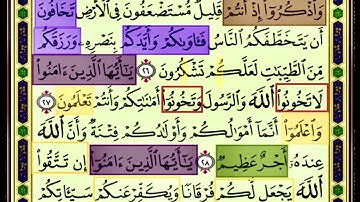 وَاذْكُرُوٓا۟ إِذْ أَنتُمْ قَلِيلٌ مُّسْتَضْعَفُونَ فِى ٱلْأَرْضِ تَخَافُونَ
أَن يَتَخَطَّفَكُمُ ٱلنَّاسُ فَـَٔاوَىٰكُمْ وَأَيَّدَكُم بِنَصْرِهِۦ وَرَزَقَكُم
مِّنَ ٱلطَّيِّبَـٰتِ لَعَلَّكُمْ تَشْكُرُونَ ٢٦ يَـٰٓأَيُّهَا ٱلَّذِينَ ءَامَنُوا۟
لَا تَخُونُوا۟ ٱللَّهَ وَٱلرَّسُولَ وَتَخُونُوٓا۟ أَمَـٰنَـٰتِكُمْ وَأَنتُمْ تَعْلَمُونَ ٢٧
وَٱعْلَمُوٓا۟ أَنَّمَآ أَمْوَٰلُكُمْ وَأَوْلَـٰدُكُمْ فِتْنَةٌ وَأَنَّ ٱللَّهَ
عِندَهُۥٓ أَجْرٌ عَظِيمٌ ٢٨ يَـٰٓأَيُّهَا ٱلَّذِينَ ءَامَنُوٓا۟ إِن تَتَّقُوا۟
ٱللَّهَ يَجْعَل لَّكُمْ فُرْقَانًا وَيُكَفِّرْ عَنكُمْ سَيِّـَٔاتِكُمْ